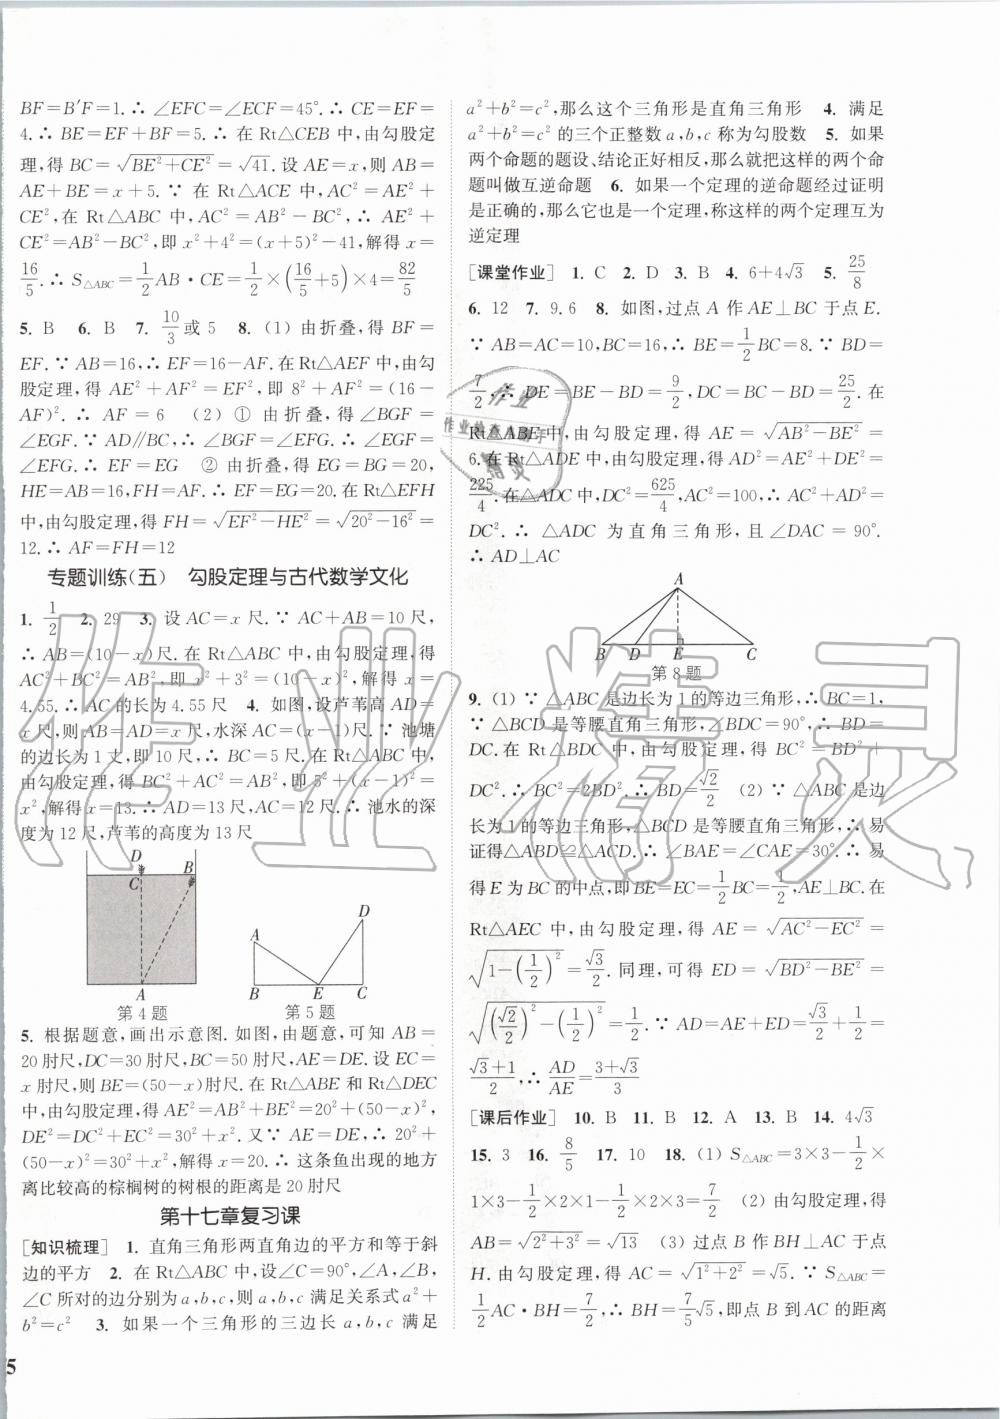 BF=B′F=1.∴ ∠EFC=∠ECF=45°.∴ CE=EF=
4.∴ BE=EF+BF=5.∴ 在 Rt△CEB 中,由勾股定
理,得 BC=√(BE²+CE²)=√41.设 AE=x,则 AB=
AE+BE=x+5.∵ 在 Rt△ACE 中,AC²=AE²+
CE²,在 Rt△ABC 中,AC²=AB²-BC²,∴ AE²+
CE²=AB²-BC²,即 x²+4²=(x+5)²-41,解得 x=
16/5.∴ S△ABC=1/2 AB·CE=1/2×(16/5+5)×4=82/5
5. B 6. B 7. 10/3或 5 8. (1) 由折叠,得 BF=
EF.∵ AB=16,∴ EF=16-AF.在 Rt△AEF 中,由勾
股定理,得 AE²+AF²=EF²,即 8²+AF²=(16-
AF)².∴ AF=6 (2) ① 由折叠,得∠BGF=
∠EGF.∵ AD∥BC,∴ ∠BGF=∠EFG.∴ ∠EGF=
∠EFG.∴ EF=EG ② 由折叠,得 EG=BG=20,
HE=AB=16,FH=AF.∴ EF=EG=20.在 Rt△EFH
中,由勾股定理,得 FH=√(EF²-HE²)=√(20²-16²)=
12.∴ AF=FH=12
专题训练(五) 勾股定理与古代数学文化
1. 1/2 2. 29 3. 设 AC=x 尺.∵ AC+AB=10 尺,
∴ AB=(10-x)尺.在 Rt△ABC 中,由勾股定理,得
AC²+BC²=AB²,即 x²+3²=(10-x)²,解得 x=
4.55.∴ AC 的长为 4.55 尺 4. 如图,设芦苇高 AD=
x 尺,则 AB=AD=x 尺,水深 AC=(x-1)尺.∵ 池塘
的边长为 1 丈,即 10 尺,∴ BC=5 尺.在 Rt△ABC 中,
由勾股定理,得 BC²+AC²=AB²,即 5²+(x-1)²=
x²,解得 x=13.∴ AD=13 尺,AC=12 尺.∴ 池水的深
度为 12 尺,芦苇的高度为 13 尺
D
C
B
A
第 4 题
A
D
B
E
C
第 5 题
5. 根据题意,画出示意图.如图,由题意,可知 AB=
20 肘尺,DC=30 肘尺,BC=50 肘尺,AE=DE.设 EC=
x 肘尺,则 BE=(50-x)肘尺.在 Rt△ABE 和 Rt△DEC
中,由勾股定理,得 AE²=AB²+BE²=20²+(50-x)²,
DE²=DC²+EC²=30²+x².又∵ AE=DE,∴ 20²+
(50-x)²=30²+x²,解得 x=20.∴ 这条鱼出现的地方
离比较高的棕榈树的树根的距离是 20 肘尺
第十七章复习课
[知识梳理] 1. 直角三角形两直角边的平方和等于斜
边的平方 2. 在 Rt△ABC 中,设∠C=90°,∠A,∠B,
∠C 所对的边分别为 a,b,c,则 a,b,c 满足关系式 a²+
b²=c² 3. 如果一个三角形的三边长 a,b,c 满足
5
a²+b²=c²,那么这个三角形是直角三角形 4. 满足
a²+b²=c² 的三个正整数 a,b,c 称为勾股数 5. 如果
两个命题的题设、结论正好相反,那么就把这样的两个命
题叫做互逆命题 6. 如果一个定理的逆命题经过证明
是正确的,那么它也是一个定理,称这样的两个定理互为
逆定理
[课堂作业] 1. C 2. D 3. B 4. 6+4√3 5. 25/8
6. 12 7. 9.6 8. 如图,过点 A 作 AE⊥BC 于点 E.
∵ AB=AC=10,BC=16,∴ BE=1/2 BC=8.∵ BD=
7/2,∴ DE=BE-BD=9/2,DC=BC-BD=25/2.在
Rt△ABE 中,由勾股定理,得 AE=√(AB²-BE²)=
6.在 Rt△ADE 中,由勾股定理,得 AD²=AE²+DE²=
225/4.在△ADC 中,DC²=625/4,AC²=100,∴ AC²+AD²=
DC².∴ △ADC 为直角三角形,且∠DAC=90°.
∴ AD⊥AC
A
B D E C
第 8 题
9. (1) ∵ △ABC 是边长为 1 的等边三角形,∴ BC=1.
∵ △BDC 是等腰直角三角形,∠BDC=90°,∴ BD=
DC.在 Rt△BDC 中,由勾股定理,得 BC²=BD²+
DC².∴ BC²=2BD².∴ BD=√2/2 (2) ∵ △ABC 是边
长为 1 的等边三角形,△BDC 是等腰直角三角形,∴ 易
证得△ABD≌△ACD.∴ ∠BAE=∠CAE=30°.∴ 易
得 E 为 BC 的中点,即 BE=EC=1/2 BC=1/2,AE⊥BC.在
Rt△AEC 中,由勾股定理,得 AE=√(AC²-EC²)=
√(1-(1/2)²)=√3/2.同理,可得 ED=√(BD²-BE²)=
√((√2/2)²-(1/2)²)=1/2.∵ AD=AE+ED=√3/2+1/2=
(√3+1)/2,∴ AD/AE=(3+√3)/3
[课后作业] 10. B 11. B 12. A 13. B 14. 4√3
15. 3 16. 8/5 17. 10 18. (1) S△ABC=3×3-1/2×
1×3-1/2×2×1-1/2×2×3=7/2 (2) 由勾股定理,得
AB=√(2²+3²)=√13 (3) 过点 B 作 BH⊥AC 于点
H.由勾股定理,得 AC=√(1²+2²)=√5.∵ S△ABC=
1/2 AC·BH=7/2,∴ BH=7/5 √5,即点 B 到 AC 的距离
作业
作业检查小助手
精灵
作业精灵